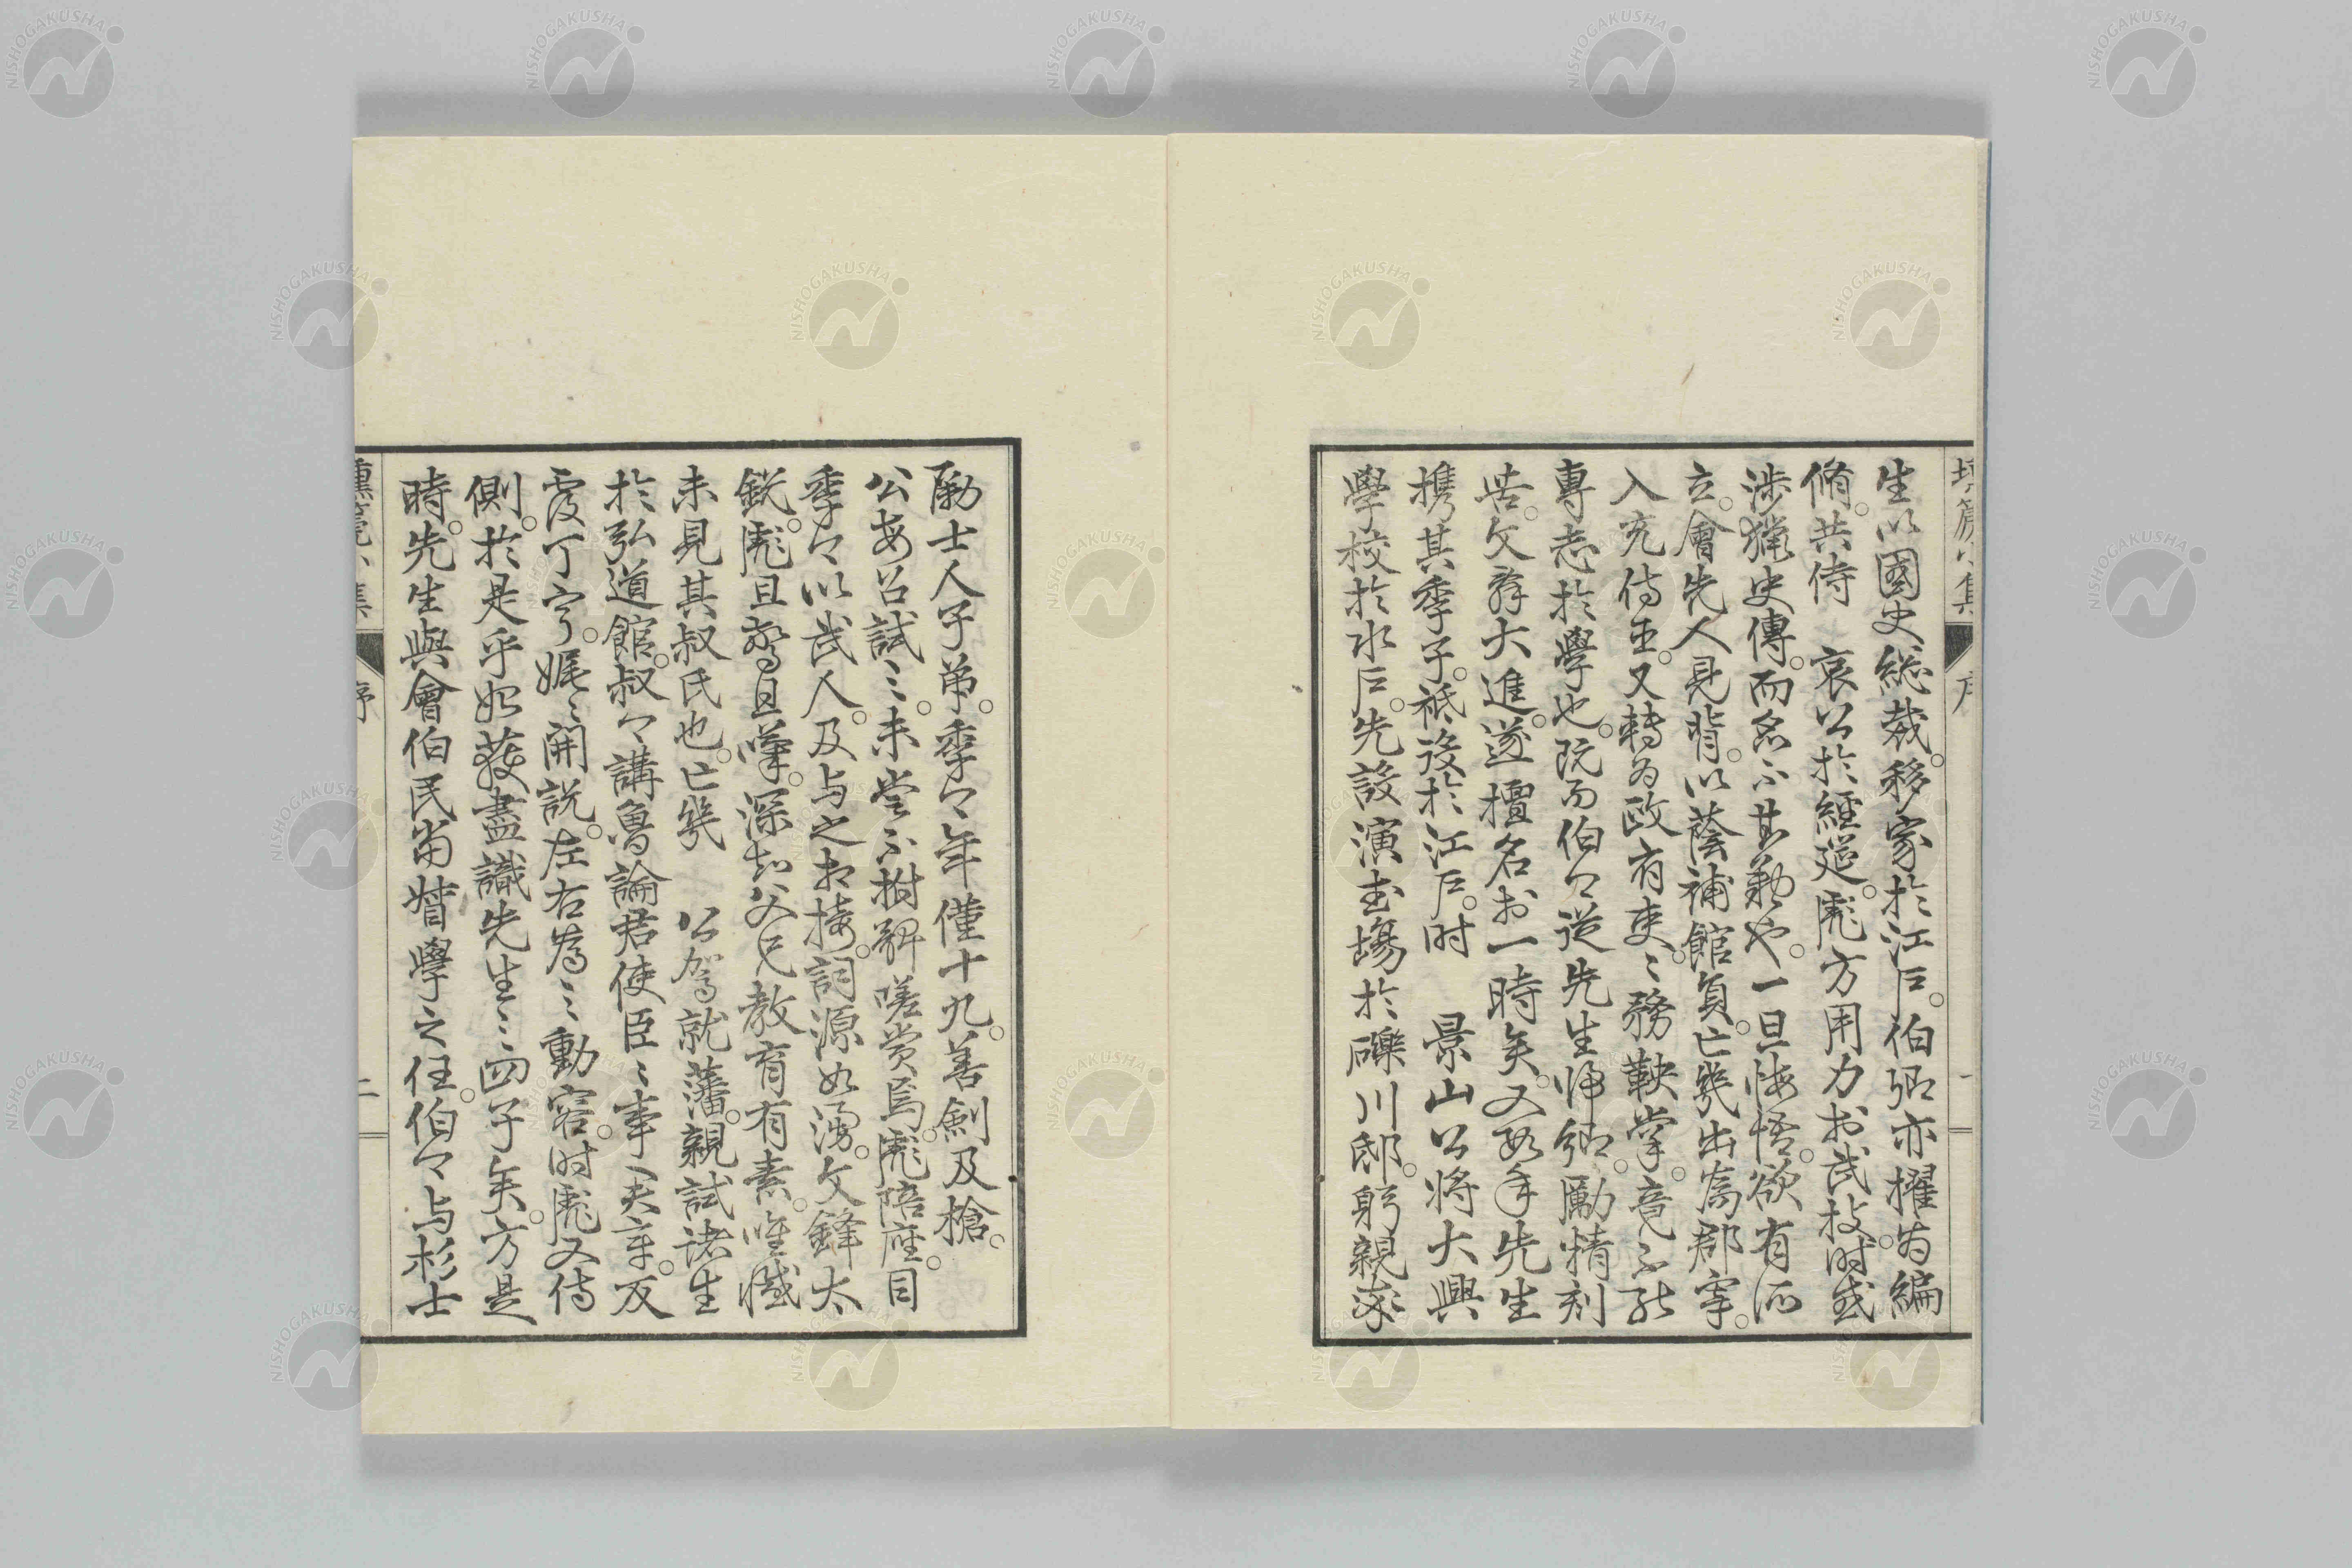 生以國史總裁。移家於江戶。伯卿亦擢為編
脩。共侍 哀公於經筵。彪方用力於武技。时或
涉獵史傳。而為不甚勤也。一旦悔悟。欲有所
立。會先人見背。以蔭補館員。亡幾出為郡宰。
入充侍臣。又轉為政府吏。〻務鞅掌。竟不能
專志於學也。既而伯〻從先生歸鄉。勵精刻
苦。文辞大進。遂擅名於一時矣。又數年先生
携其季子。祗役於江戶。时 景山公将大興
學校於水戶。先設演武場於礫川邸。躬親家
勵士人子弟。季〻年僅十九。善劍及槍。
公每召試〻。未嘗不樹辭嗟赏焉。彪陪座。目
季〻以武人。及与之相接。詞源如湧。文鋒太
銳。彪且驚且嘆。深知父兄教育有素。唯憾
未見其叔氏也。亡幾 公駕就藩。親試诸生
於弘道館。叔〻講魯論君使臣〻事君章。反
覆丁寧。娓〻開説。左右為〻動容。时彪又侍
側。於是乎始獲盡識先生〻四子矣。方是
時。先生與會伯民當督學之任。伯〻与杉士
壎篪小集 序 一
壎篪小集 序 二